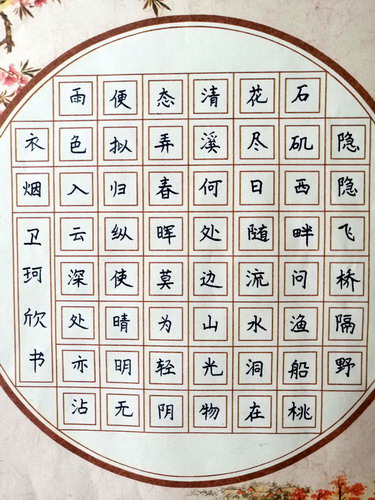 隐隐飞桥隔野
石矶西畔问渔船桃
花尽日随流水洞在
清溪何处边山光物
态弄春晖莫为轻阴
便拟归纵使晴明无
雨色入云深处亦沾
衣烟
卫珂欣书